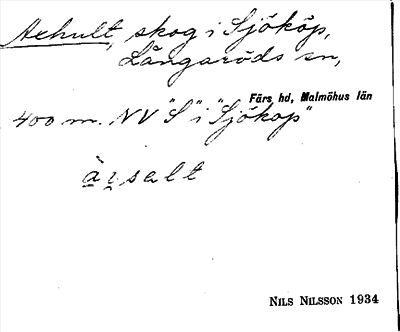 Aehult, skog i Sjököp,
Långaröds sn,
Färs hd, Malmöhus län
400 m. NV "S" i "Sjökop"
NILS NILSSON 1934